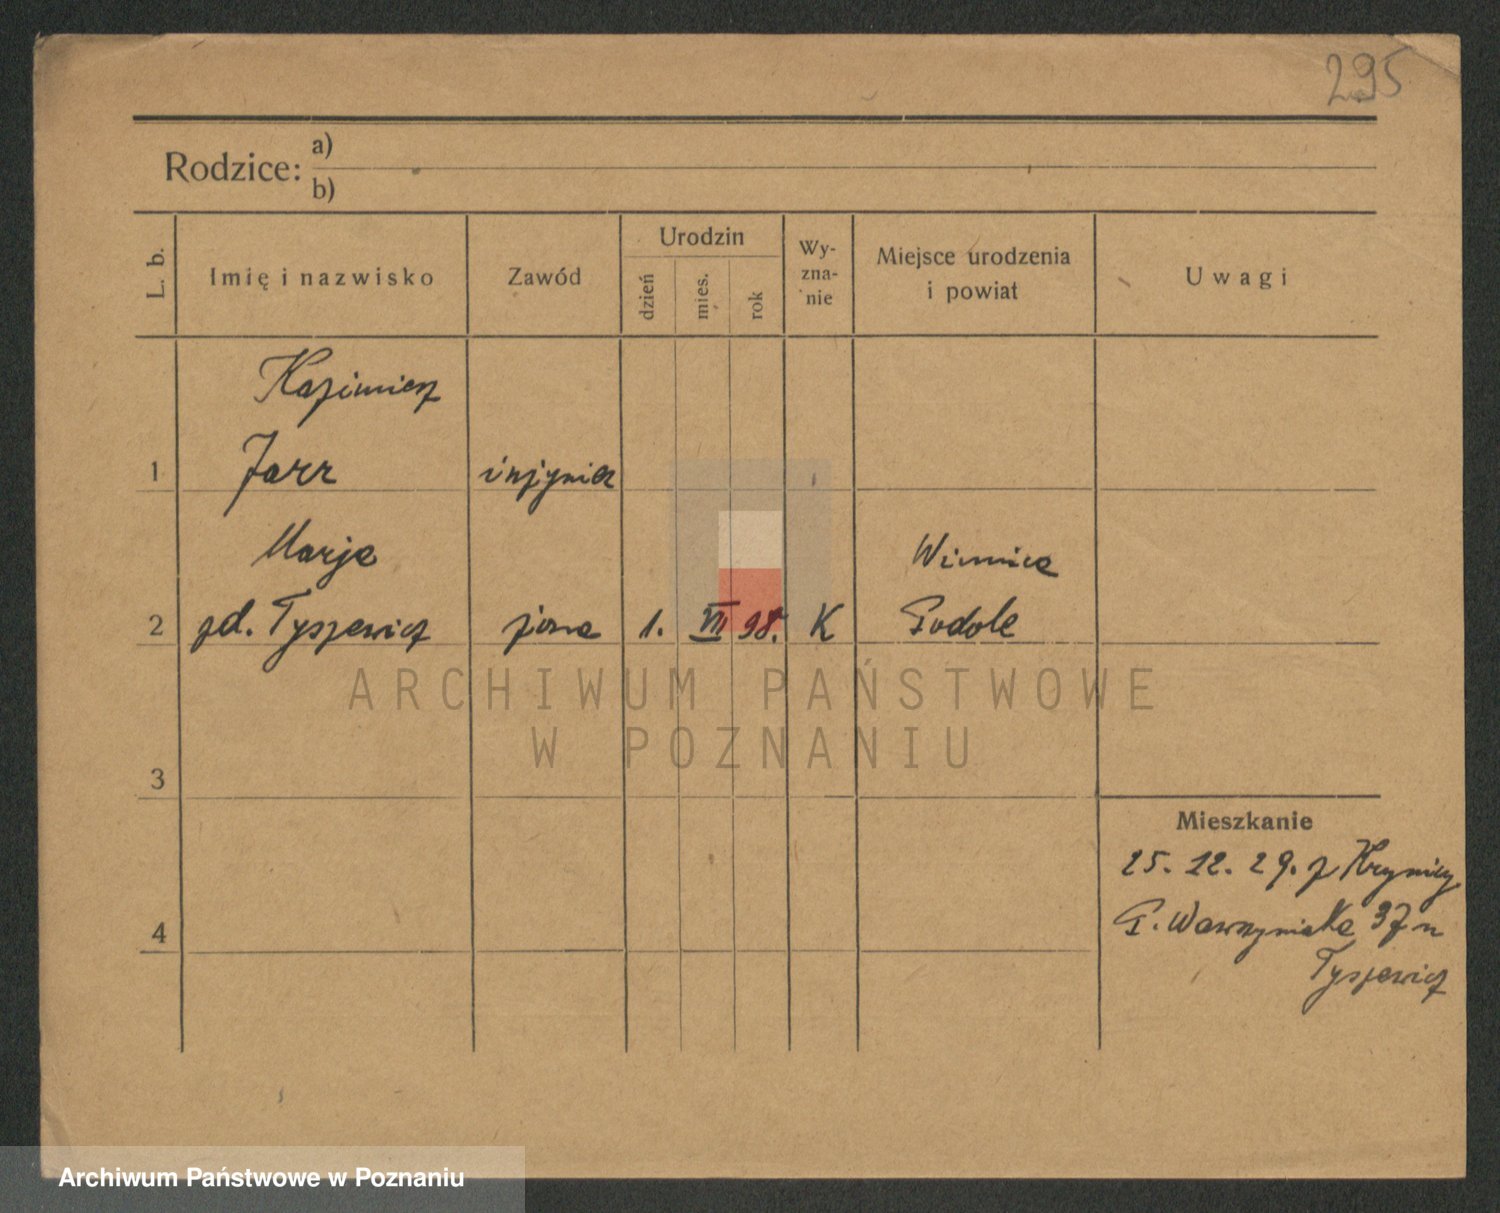 295
Rodzice: a)
b)
L. b.
Imię i nazwisko
Zawód
Urodzin
dzień
mies.
rok
Wy-
zna-
nie
Miejsce urodzenia
i powiat
Uwagi
Kazimierz
1 Jarr inżynier
Marja Winnica
2 zd. Tyszewicz żona 1. VII 98. K Podole
ARCHIWUM PAŃSTWOWE
W POZNANIU
3
Mieszkanie
25. 12. 29. z Krynicy
G. Wawrzyniaka 37 u
4
Tyszewicz
Archiwum Państwowe w Poznaniu